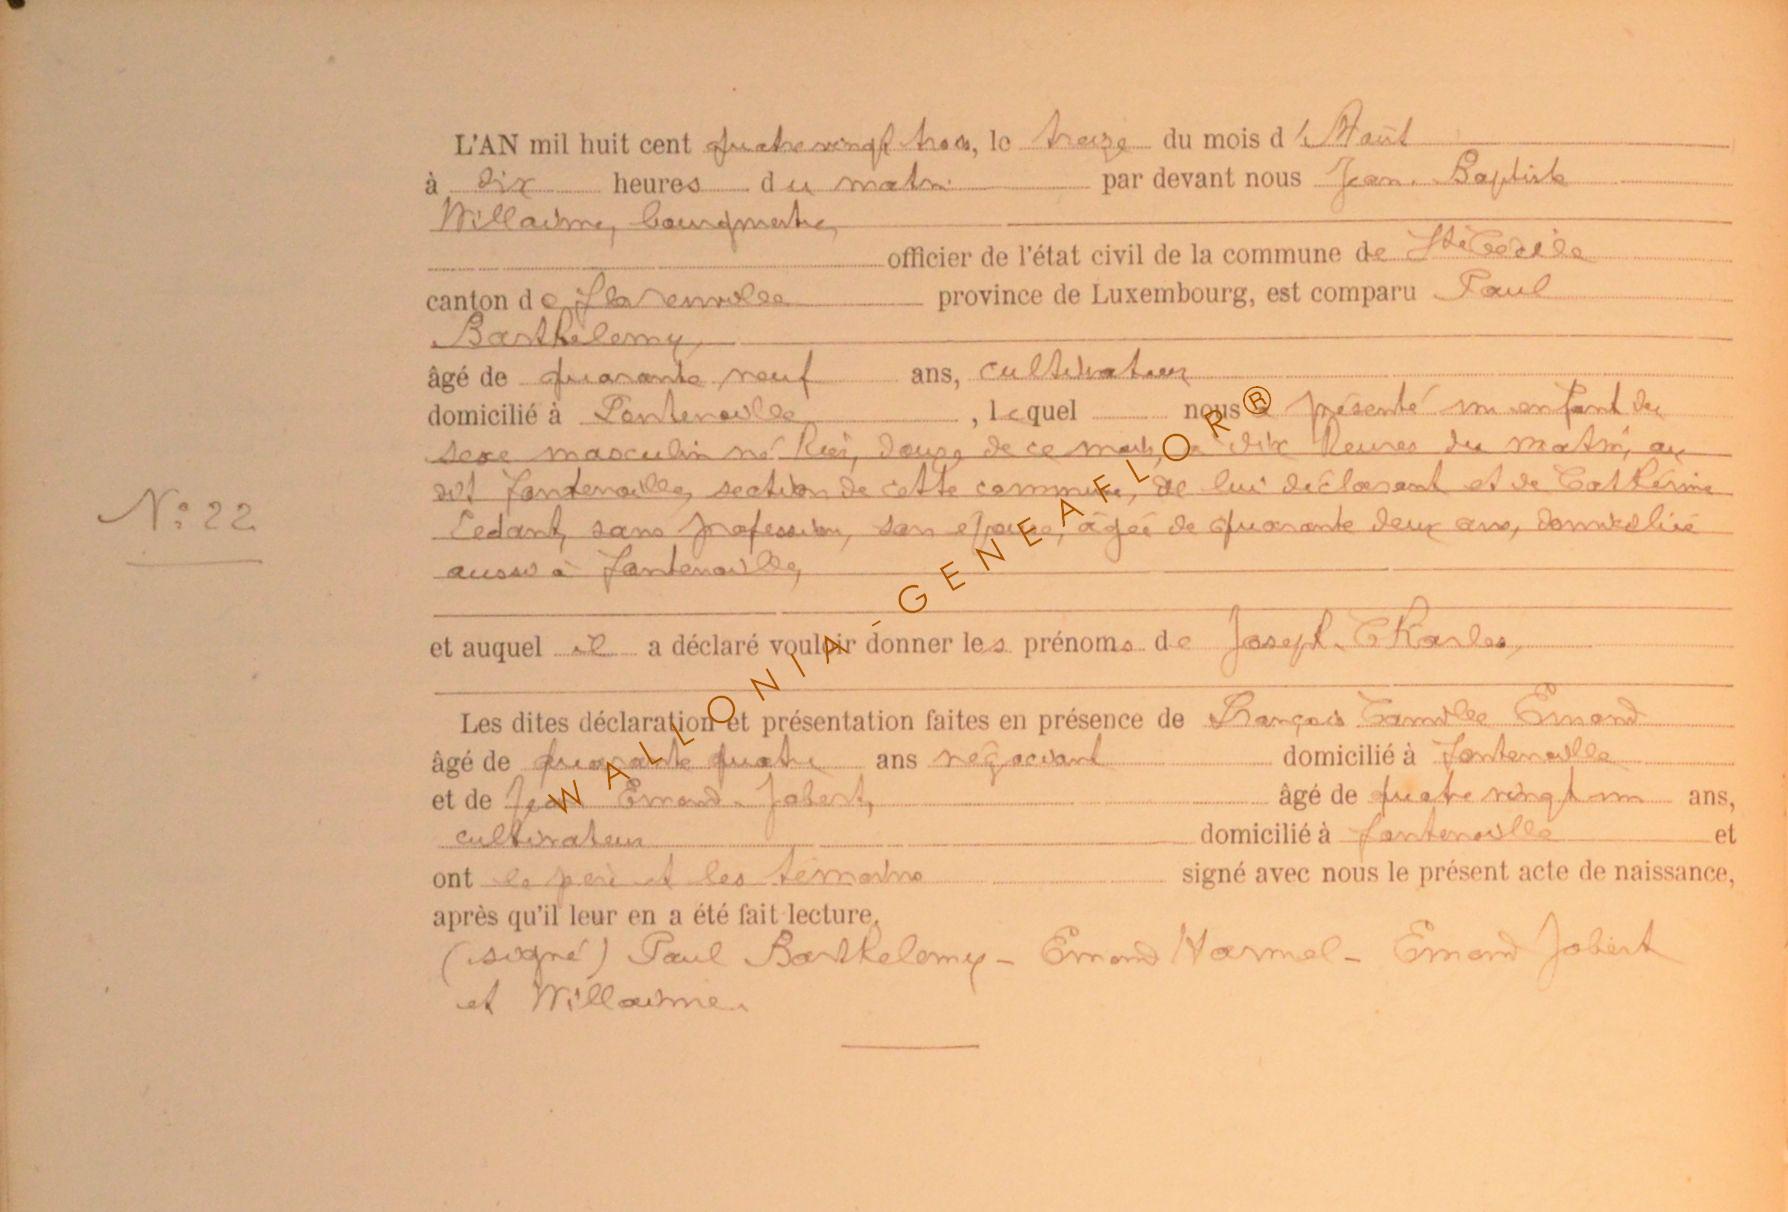 L'AN mil huit cent quatre vingt trois, le treize du mois d'Août
à dix heures du matin par devant nous Jean-Baptiste
Willaime, bourgmestre,
officier de l'état civil de la commune de Ste Cécile
canton de Florenville province de Luxembourg, est comparu Paul
Barthélemy,
âgé de quarante neuf ans, cultivateur
domicilié à Fontenoille, lequel nous a présenté un enfant du
sexe masculin né hier, douze de ce mois, à dix heures du matin, au
dit Fontenoille, section de cette commune, de lui déclarant et de Catherine
Ledant, sans profession, son épouse, âgée de quarante deux ans, domiciliée
aussi à Fontenoille,
N° 22
et auquel il a déclaré vouloir donner les prénoms de Joseph-Charles,
Les dites déclaration et présentation faites en présence de François Camille Emond
âgé de quarante quatre ans négociant domicilié à Fontenoille
et de Jean Emond-Jobert, âgé de quatre vingt un ans,
cultivateur domicilié à Fontenoille et
ont le père et les témoins signé avec nous le présent acte de naissance,
après qu'il leur en a été fait lecture.
(signé) Paul Barthelemy - Emond Harmel - Emond Jobert
et Willaime.
WALLONIA-GENEAFLOR®